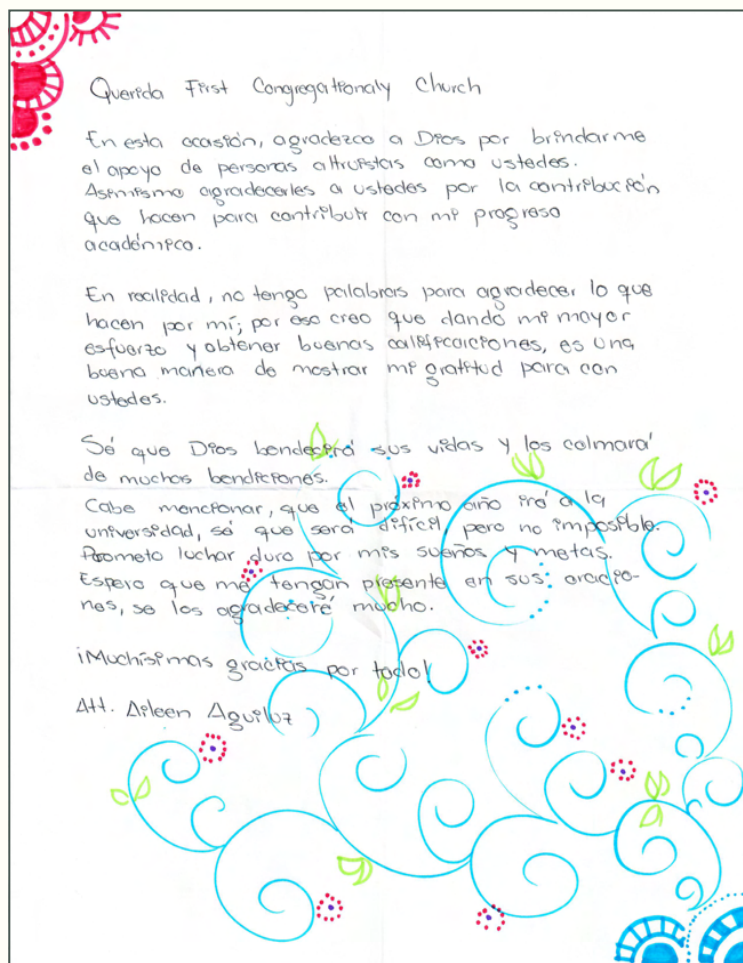 Querida First Congregationaly Church
En esta ocasión, agradezco a Dios por brindarme
el apoyo de personas altruistas como ustedes.
Asimismo agradecerles a ustedes por la contribución
que hacen para contribuir con mi progreso
académico.
En realidad, no tengo palabras para agradecer lo que
hacen por mí; por eso creo que dando mi mayor
esfuerzo y obtener buenas calificaciones, es una
buena manera de mostrar mi gratitud para con
ustedes.
Sé que Dios bendecirá sus vidas y los colmará
de muchas bendiciones.
Cabe mencionar, que el próximo año iré a la
universidad, sé que será difícil pero no imposible.
Prometo luchar duro por mis sueños y metas.
Espero que me tengan presente en sus oracio-
nes, se los agradeceré mucho.
¡Muchísimas gracias por todo!
Att. Aileen Aguiluz